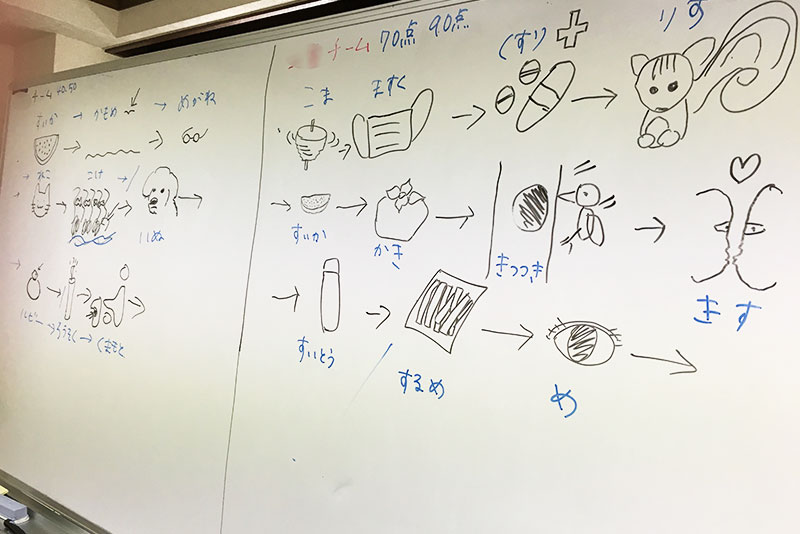 チーム 40.50
すいか → かもめ → めがね
ねこ → こけ → いぬ
ルビー → ろうそく → くまもと
チーム 70点 90点
こま ますく くすり りす
すいか かき きつつき きす
すいとう するめ め